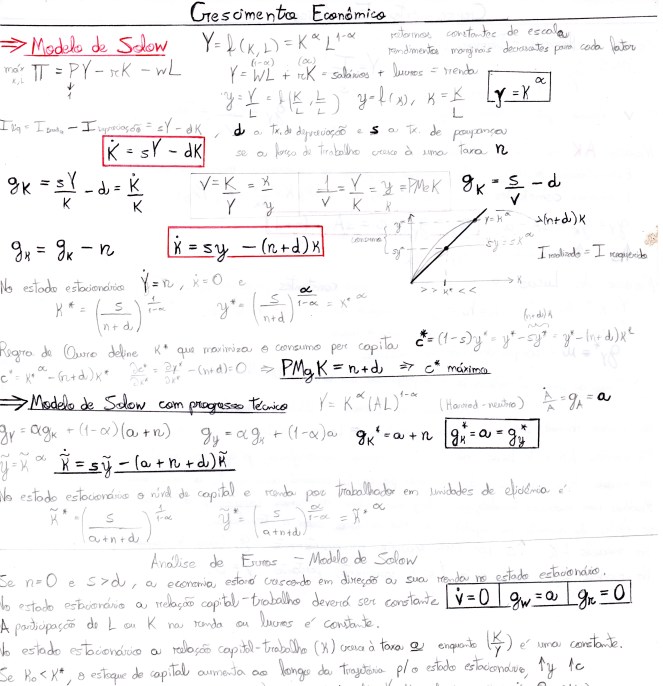 Crescimento Econômico
⇒ Modelo de Solow Y = f(K,L) = K^α L^(1-α) retornos constantes de escala
rendimentos marginais decrescentes para cada fator
máx K,L Π = PY - rK - wL Y = wL + rK = salários + lucros = renda
(1-α) (α)
1 y = Y/L = f(K/L, L/L) y = f(k), k = K/L y = k^α
I líq = I bruto - I depreciação = sY - dK, d a tx. de depreciação e s a tx. de poupança
K̇ = sY - dK se a força de trabalho cresce à uma taxa n
gK = sY/K - d = K̇/K V = K/Y = k/y 1/V = Y/K = y/k = PMeK gK = s/V - d
gk = gK - n k̇ = sy - (n+d)k
consumo y* sy* y = k^α (n+d)k sy = sk^α I realizado = I requerido
>> k* << k
No estado estacionário Ẏ = n, k̇ = 0 e
k* = (s/(n+d))^(1/(1-α)) y* = (s/(n+d))^(α/(1-α)) = k*^α
Regra de Ouro define k* que maximiza o consumo per capita c* = (1-s)y* = y* - sy* = y* - (n+d)k*
(n+d)k
c* = k*^α - (n+d)k* ∂c*/∂k* = ∂y*/∂k* - (n+d) = 0 ⇒ PMgK = n+d ⇒ c* máximo
⇒ Modelo de Solow com progresso técnico Y = K^α (AL)^(1-α) (Harrod-neutro) Ȧ/A = gA = a
gY = αgK + (1-α)(a+n) gy = αgk + (1-α)a gK* = a + n gk* = a = gy*
ỹ = k̃^α k̃̇ = sỹ - (a+n+d)k̃
No estado estacionário o nível de capital e renda por trabalhador em unidades de eficiência é
k̃* = (s/(a+n+d))^(1/(1-α)) ỹ* = (s/(a+n+d))^(α/(1-α)) = k̃*^α
Análise de Erros - Modelo de Solow
Se n=0 e s>d, a economia estará crescendo em direção a sua renda no estado estacionário.
No estado estacionário a relação capital-trabalho deverá ser constante V̇ = 0 gw = a gr = 0
A participação de L ou K na renda ou lucros é constante.
No estado estacionário a relação capital-trabalho (k) cresce à taxa a enquanto (K/Y) é uma constante.
Se k₀ < k*, o estoque de capital aumenta ao longo da trajetória p/ o estado estacionário, ↑y ↑c